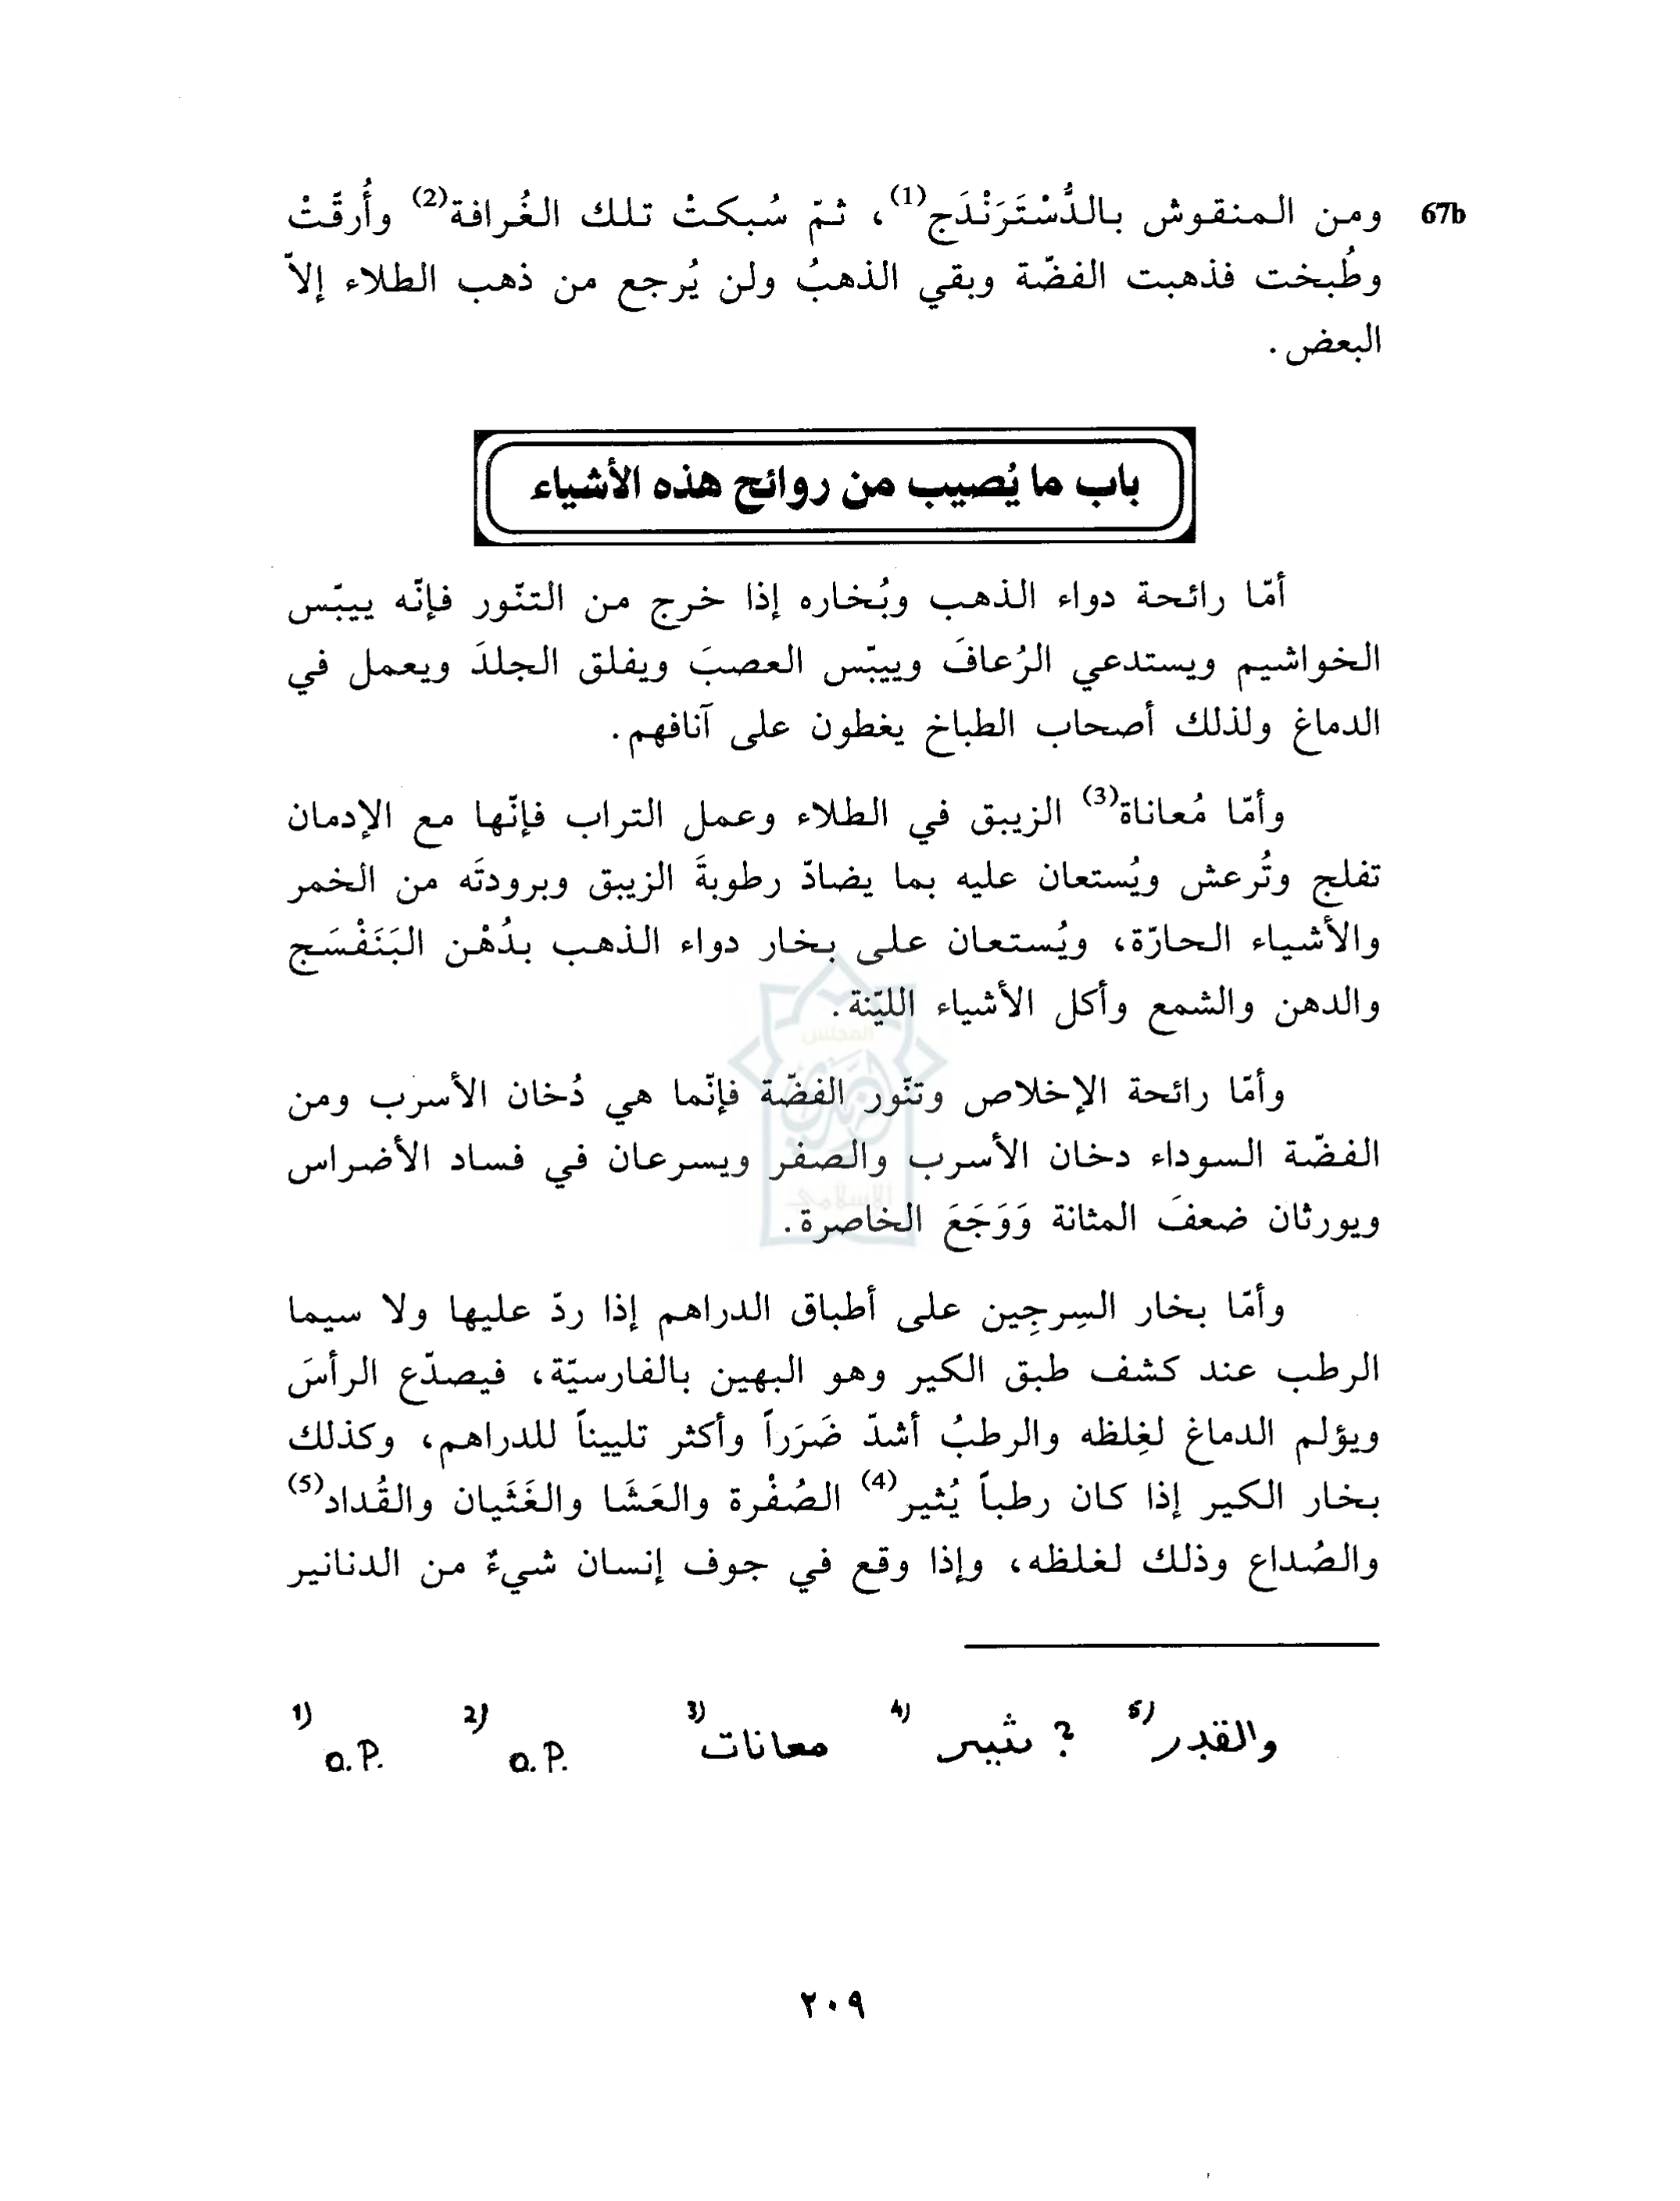 67b ومن المنقوش بالدُّسْتَرَنْدَج(1)، ثمّ سُبكتْ تلك الغُرافة(2) وأُرقَّتْ
وطُبخت فذهبت الفضّة وبقي الذهبُ ولن يُرجع من ذهب الطلاء إلاّ
البعض.
باب ما يُصيب من روائح هذه الأشياء
أمّا رائحة دواء الذهب وبُخاره إذا خرج من التنّور فإنّه ييبّس
الخواشيم ويستدعي الرُعافَ وييبّس العصبَ ويفلق الجلدَ ويعمل في
الدماغ ولذلك أصحاب الطباخ يغطون على آنافهم.
وأمّا مُعاناة(3) الزيبق في الطلاء وعمل التراب فإنّها مع الإدمان
تفلج وتُرعش ويُستعان عليه بما يضادّ رطوبةَ الزيبق وبرودتَه من الخمر
والأشياء الحارّة، ويُستعان على بخار دواء الذهب بدُهْن البَنَفْسَج
والدهن والشمع وأكل الأشياء الليّنة.
وأمّا رائحة الإخلاص وتنّور الفضّة فإنّما هي دُخان الأسرب ومن
الفضّة السوداء دخان الأسرب والصفر ويسرعان في فساد الأضراس
ويورثان ضعفَ المثانة وَوَجَعَ الخاصرة.
وأمّا بخار السِرجِين على أطباق الدراهم إذا ردّ عليها ولا سيما
الرطب عند كشف طبق الكير وهو البهين بالفارسيّة، فيصدّع الرأسَ
ويؤلم الدماغ لغِلظه والرطبُ أشدّ ضَرَراً وأكثر تلييناً للدراهم، وكذلك
بخار الكير إذا كان رطباً يُثير(4) الصُفْرة والعَشَا والغَثَيان والقُداد(5)
والصُداع وذلك لغلظه، وإذا وقع في جوف إنسان شيءٌ من الدنانير
1) o.P. 2) o.P. 3) معانات 4) ? ثير 5) والقدر
٢٠٩
المجلس
الإسلامي